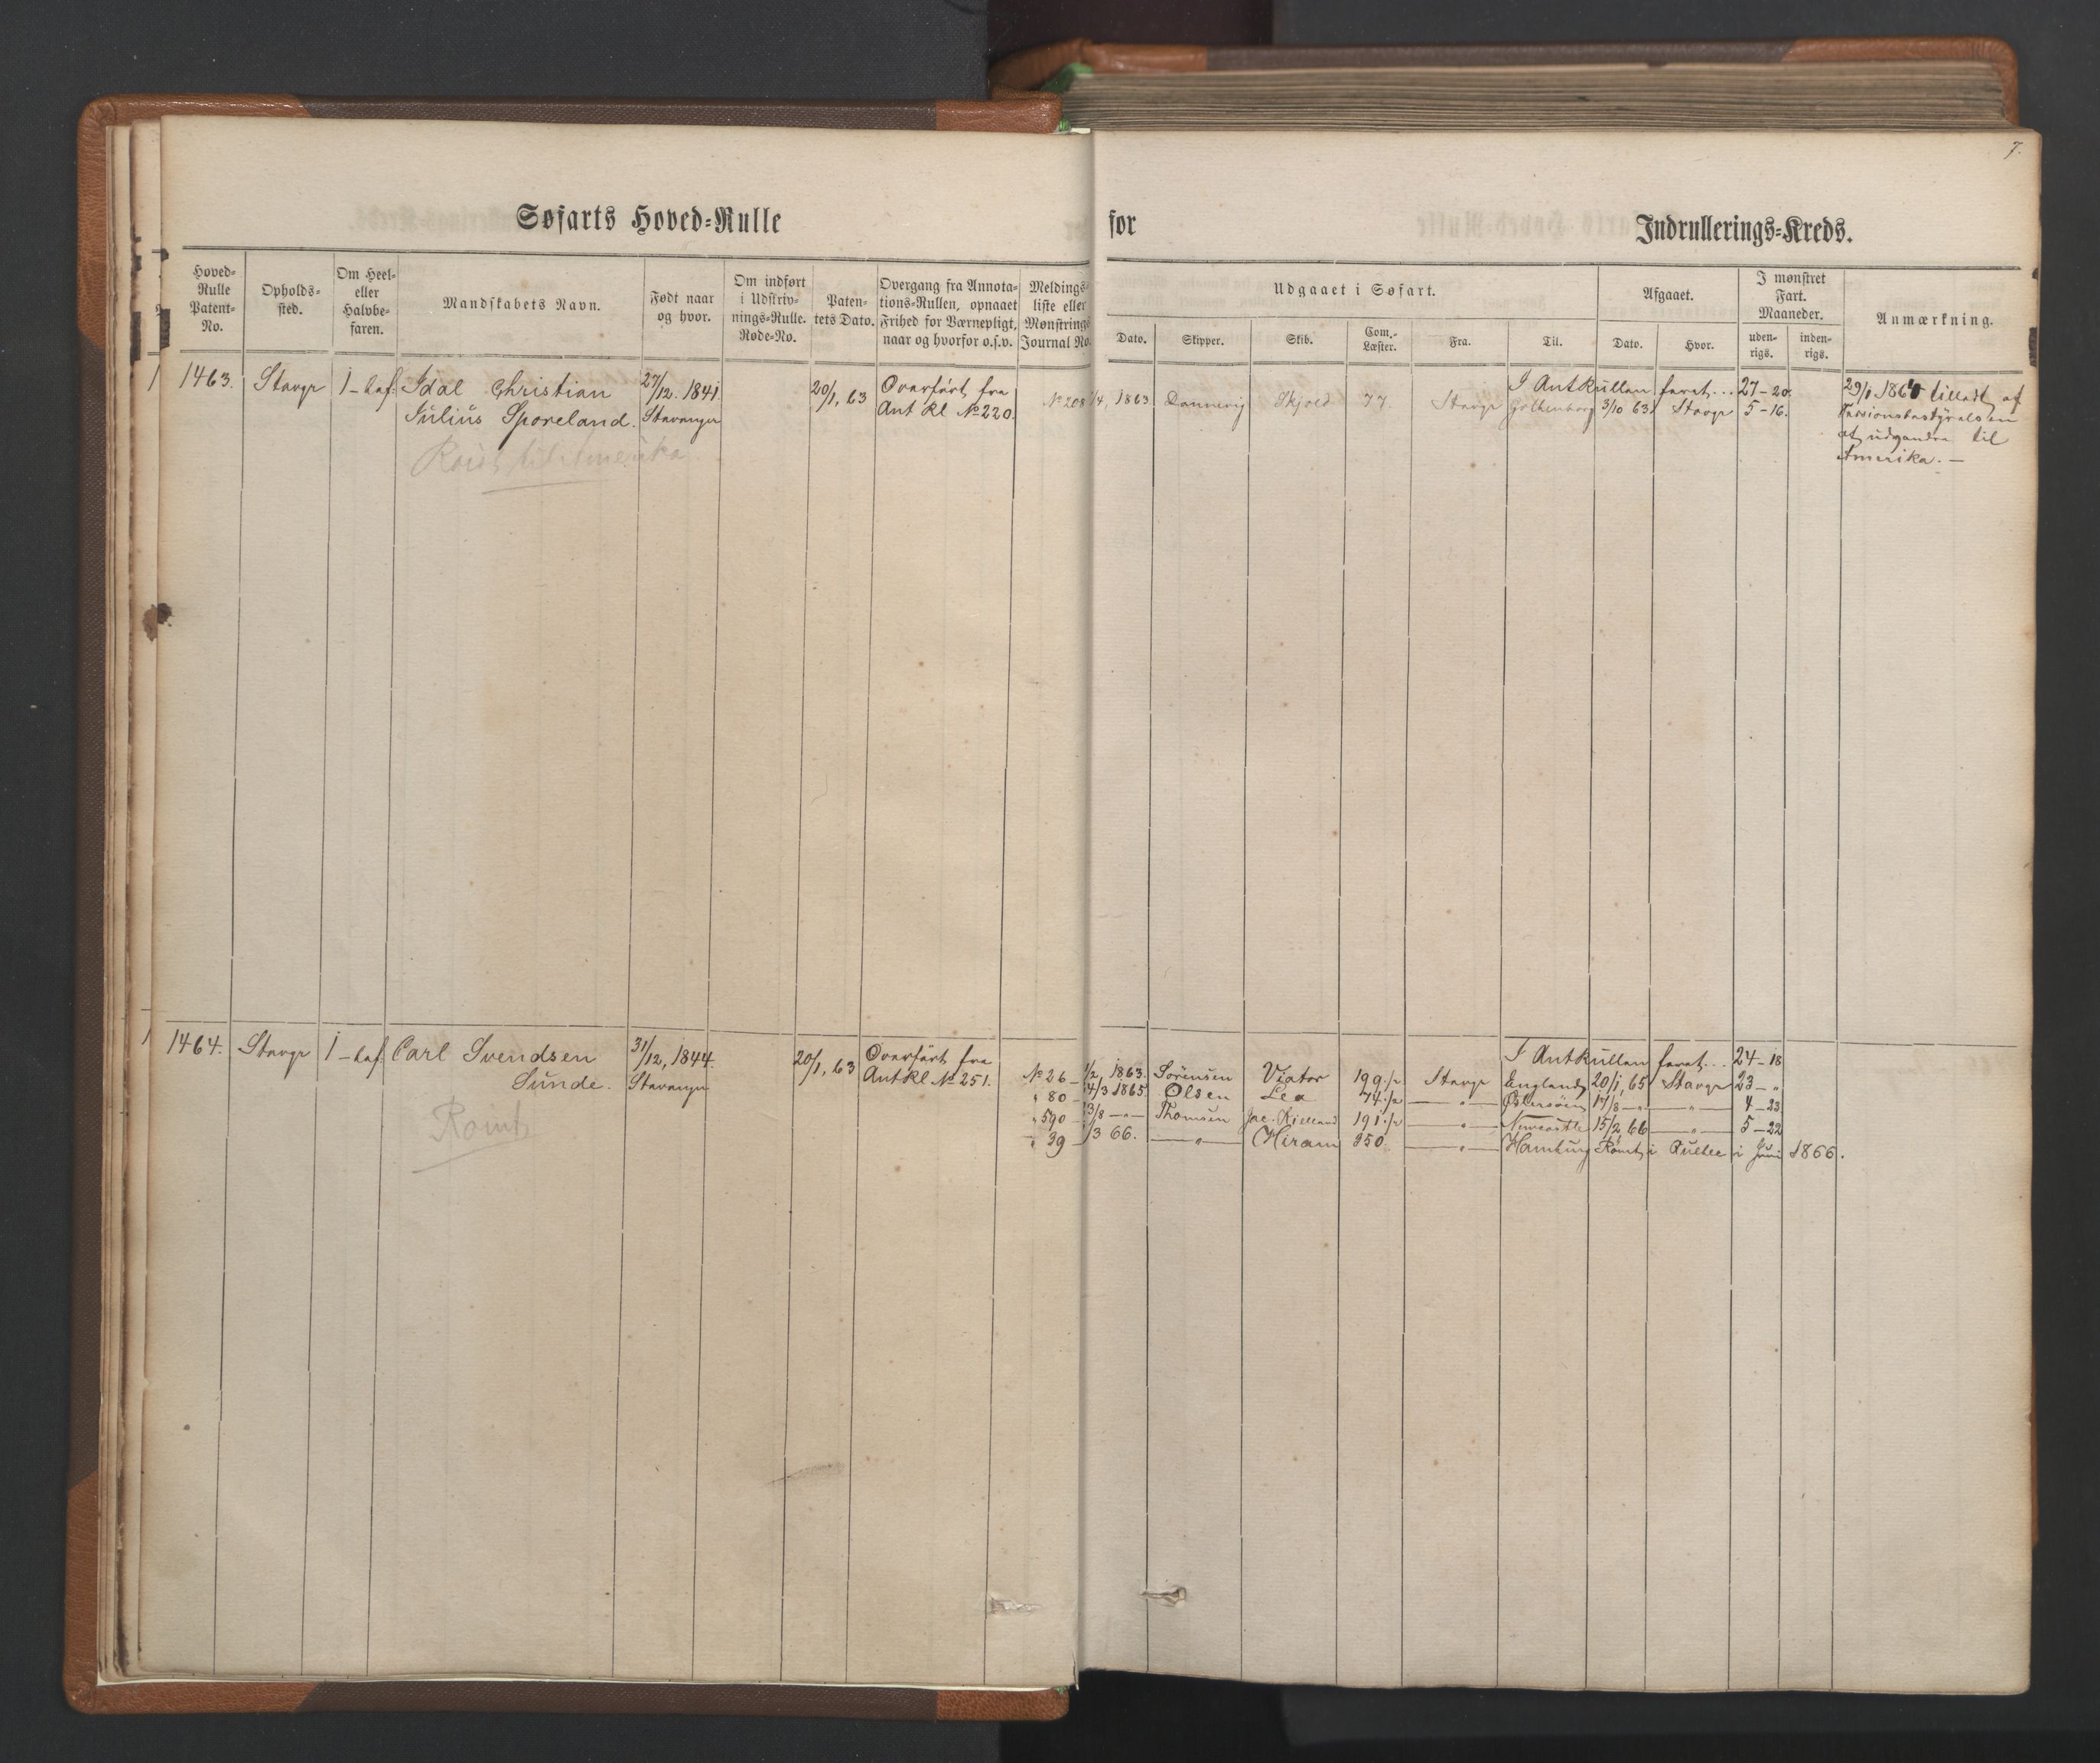 7.
Søfarts Hoved=Rulle for Indrullerings=Kreds.
Hoved=Rulle Patent=No.
Opholds=sted.
Om Heel= eller Halvbe=faren.
Mandskabets Navn.
Født naar og hvor.
Om indført i Udskriv=nings=Rulle. Rode=No.
Paten=tets Dato.
Overgang fra Annota=tions=Rullen, opnaaet Frihed for Værnepligt, naar og hvorfor o.s.v.
Meldings=liste eller Mønstrings Journal No.
Udgaaet i Søfart.
Dato.
Skipper.
Skib.
Com.=Læster.
Fra.
Til.
Afgaaet.
Dato.
Hvor.
I mønstret Fart. Maaneder.
uden=rigs.
inden=rigs.
Anmærkning.
1463. Stavgr 1-baf. Idal Christian 27/12. 1841 20/1, 63 Overført fra I Antkullen faret... 27-20. 29/1 186 tilladt af
Julius Sporeland. Stavanger Ant Rl No 220. No 208 1/4, 1863. Dannevig Skjold 77 Stavgr Gothenborg 3/10 63. Stavgr 5-16.
at udvandre til
til Amerika
Amerika. —
1464. Stavgr 1-baf. Carl Svendsen 31/12, 1844. 20/1, 63 Overført fra I Antrullen faret... 24-18
Sunde. Stavanger Antkl No 251. No 26 - 1/2, 1863. Sørensen Viator 199 Stavgr England 20/1, 65 Stavgr 23 - "
" 80 - 4/3 1865 Olsen Lea 74 — " — Østersøen 17/8 — " — — " — 4-23
Rømt
" 590 - 3/8 — " — Thomsen Jac. Kielland 191 — " — Newcastle 15/2 66 — " — 5-22
" 39 - /3 66. — " — Hiram 350. — " — Hamburg Rømt i Juni 1866.